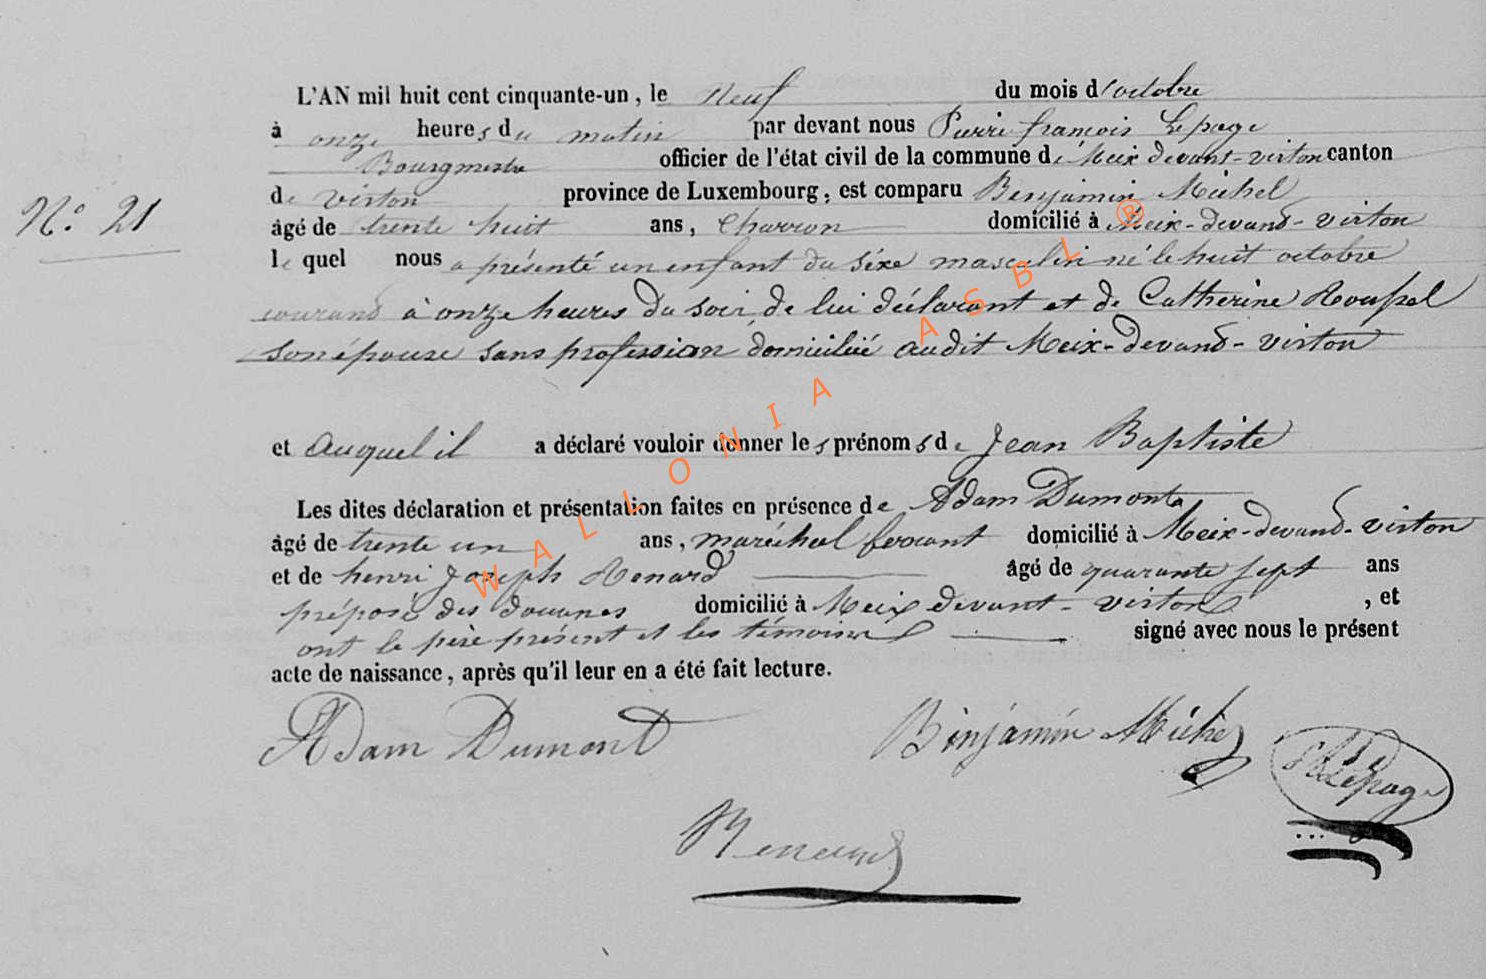 L'AN mil huit cent cinquante-un, le Neuf du mois d'octobre
à onze heures du matin par devant nous Pierre françois Lepage
Bourgmestre officier de l'état civil de la commune de Meix devant-virton canton
de virton province de Luxembourg, est comparu Benjamin Michel
N.o 21
âgé de trente huit ans, Charron domicilié à Meix-devand-virton
le quel nous a présenté un enfant du séxe masculin né le huit octobre
courand à onze heures du soir, de lui déclarant et de Catherine Roussel
son épouse sans profession domiciliée audit Meix-devand-virton
et auquel il a déclaré vouloir donner les prénoms de Jean Baptiste
Les dites déclaration et présentation faites en présence de Adam Dumont
âgé de trente un ans, maréchal ferrant domicilié à Meix-devand-virton
et de henri Joseph Renard âgé de quarante sept ans
préposé des douanes domicilié à Meix devant-virton, et
ont le père présent et les témoins signé avec nous le présent
acte de naissance, après qu'il leur en a été fait lecture.
Adam Dumont Benjamin Michel Lepage
Renard
WALLONIA ASBL ®